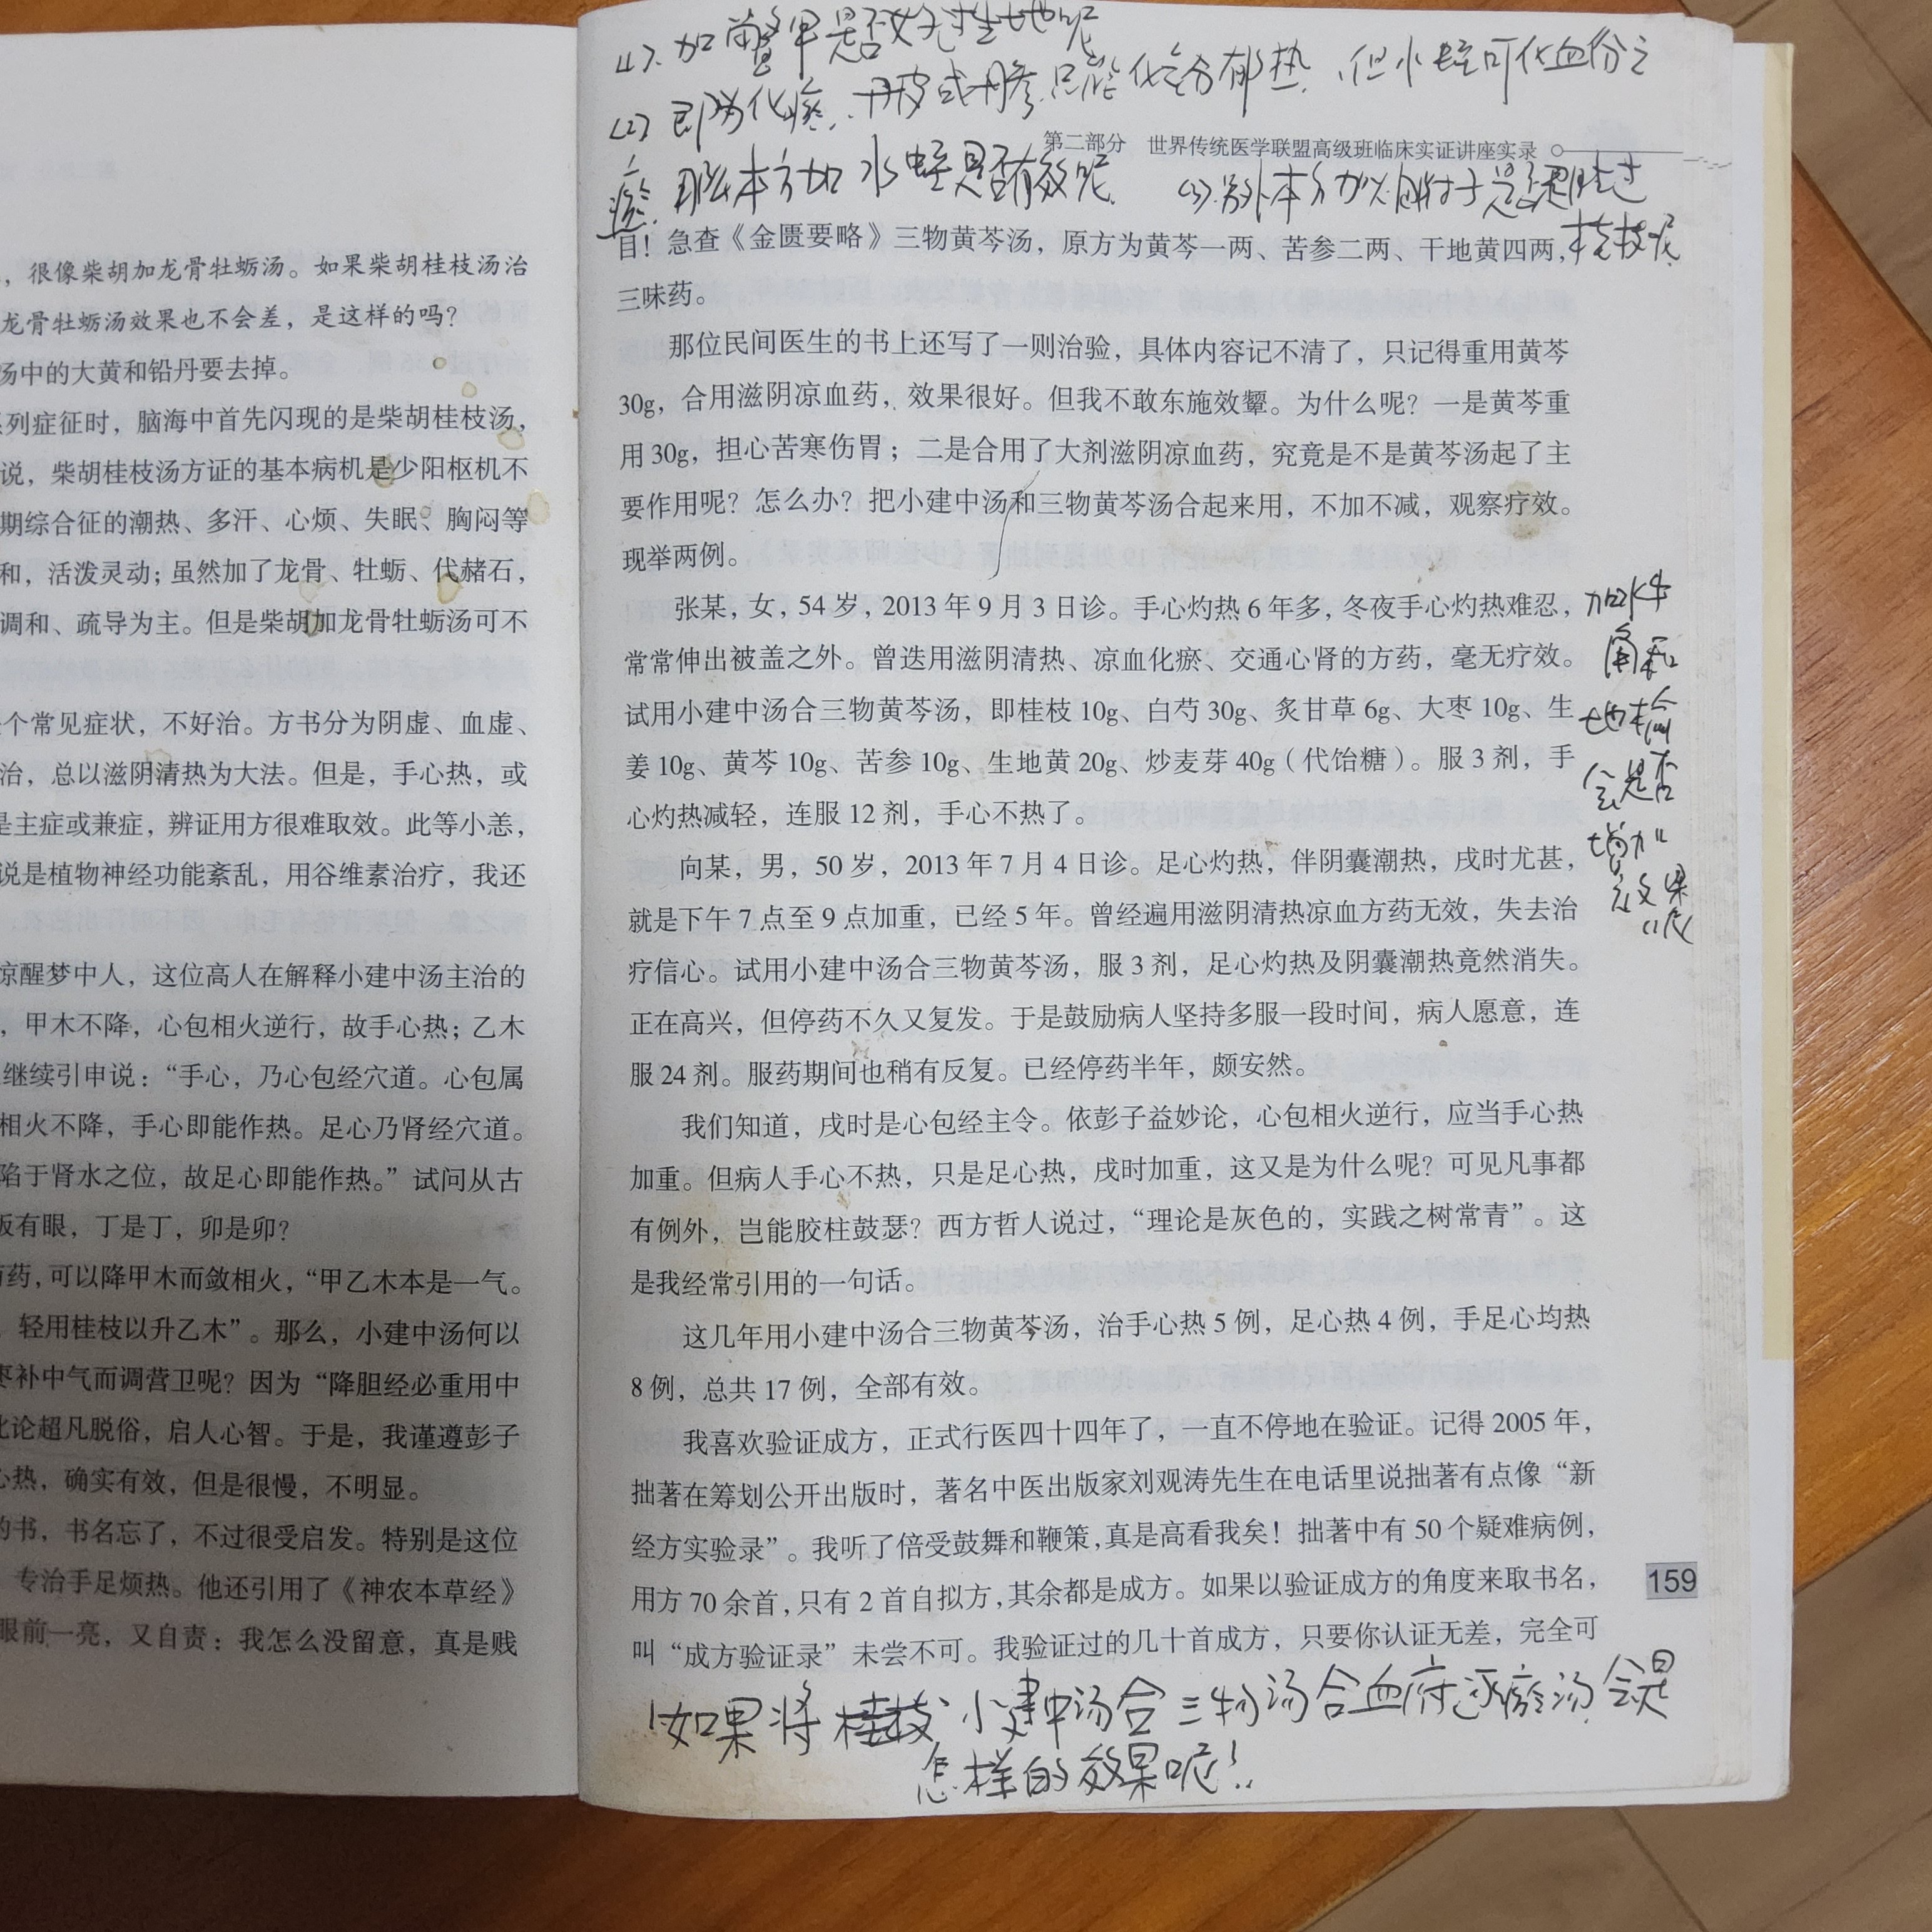 ，很像柴胡加龙骨牡蛎汤。如果柴胡桂枝汤治
龙骨牡蛎汤效果也不会差，是这样的吗？
汤中的大黄和铅丹要去掉。
系列症征时，脑海中首先闪现的是柴胡桂枝汤，
说，柴胡桂枝汤方证的基本病机是少阳枢机不
期综合征的潮热、多汗、心烦、失眠、胸闷等
和，活泼灵动；虽然加了龙骨、牡蛎、代赭石，
调和、疏导为主。但是柴胡加龙骨牡蛎汤可不
个常见症状，不好治。方书分为阴虚、血虚、
治，总以滋阴清热为大法。但是，手心热，或
是主症或兼症，辨证用方很难取效。此等小恙，
说是植物神经功能紊乱，用谷维素治疗，我还
惊醒梦中人，这位高人在解释小建中汤主治的
，甲木不降，心包相火逆行，故手心热；乙木
继续引申说：“手心，乃心包经穴道。心包属
相火不降，手心即能作热。足心乃肾经穴道。
陷于肾水之位，故足心即能作热。”试问从古
板有眼，丁是丁，卯是卯？
药，可以降甲木而敛相火，“甲乙木本是一气。
轻用桂枝以升乙木”。那么，小建中汤何以
枣补中气而调营卫呢？因为“降胆经必重用中
此论超凡脱俗，启人心智。于是，我谨遵彭子
心热，确实有效，但是很慢，不明显。
的书，书名忘了，不过很受启发。特别是这位
专治手足烦热。他还引用了《神农本草经》
眼前一亮，又自责：我怎么没留意，真是贱
(1)、加鳖甲是否好过生地呢
(2) 即为化瘀、丹皮或丹参只能化气分郁热、但水蛭可化血份之
瘀. 那么本方加水蛭是否有效呢
第二部分 世界传统医学联盟高级班临床实证讲座实录
(3).另外本方加以附子是否胜过
桂枝呢
目！急查《金匮要略》三物黄芩汤，原方为黄芩一两、苦参二两、干地黄四两，
三味药。
那位民间医生的书上还写了一则治验，具体内容记不清了，只记得重用黄芩
30g，合用滋阴凉血药，效果很好。但我不敢东施效颦。为什么呢？一是黄芩重
用 30g，担心苦寒伤胃；二是合用了大剂滋阴凉血药，究竟是不是黄芩汤起了主
要作用呢？怎么办？把小建中汤和三物黄芩汤合起来用，不加不减，观察疗效。
现举两例。
张某，女，54 岁，2013 年 9 月 3 日诊。手心灼热 6 年多，冬夜手心灼热难忍，
常常伸出被盖之外。曾迭用滋阴清热、凉血化瘀、交通心肾的方药，毫无疗效。
试用小建中汤合三物黄芩汤，即桂枝 10g、白芍 30g、炙甘草 6g、大枣 10g、生
姜 10g、黄芩 10g、苦参 10g、生地黄 20g、炒麦芽 40g（代饴糖）。服 3 剂，手
心灼热减轻，连服 12 剂，手心不热了。
加水牛
角和
地榆
会是否
增加
效果
呢
向某，男，50 岁，2013 年 7 月 4 日诊。足心灼热，伴阴囊潮热，戌时尤甚，
就是下午 7 点至 9 点加重，已经 5 年。曾经遍用滋阴清热凉血方药无效，失去治
疗信心。试用小建中汤合三物黄芩汤，服 3 剂，足心灼热及阴囊潮热竟然消失。
正在高兴，但停药不久又复发。于是鼓励病人坚持多服一段时间，病人愿意，连
服 24 剂。服药期间也稍有反复。已经停药半年，颇安然。
我们知道，戌时是心包经主令。依彭子益妙论，心包相火逆行，应当手心热
加重。但病人手心不热，只是足心热，戌时加重，这又是为什么呢？可见凡事都
有例外，岂能胶柱鼓瑟？西方哲人说过，“理论是灰色的，实践之树常青”。这
是我经常引用的一句话。
这几年用小建中汤合三物黄芩汤，治手心热 5 例，足心热 4 例，手足心均热
8 例，总共 17 例，全部有效。
我喜欢验证成方，正式行医四十四年了，一直不停地在验证。记得 2005 年，
拙著在筹划公开出版时，著名中医出版家刘观涛先生在电话里说拙著有点像“新
经方实验录”。我听了倍受鼓舞和鞭策，真是高看我矣！拙著中有 50 个疑难病例，
用方 70 余首，只有 2 首自拟方，其余都是成方。如果以验证成方的角度来取书名，
叫“成方验证录”未尝不可。我验证过的几十首成方，只要你认证无差，完全可
159
如果将桂枝小建中汤合三物汤合血府逐瘀汤会是
怎样的效果呢！